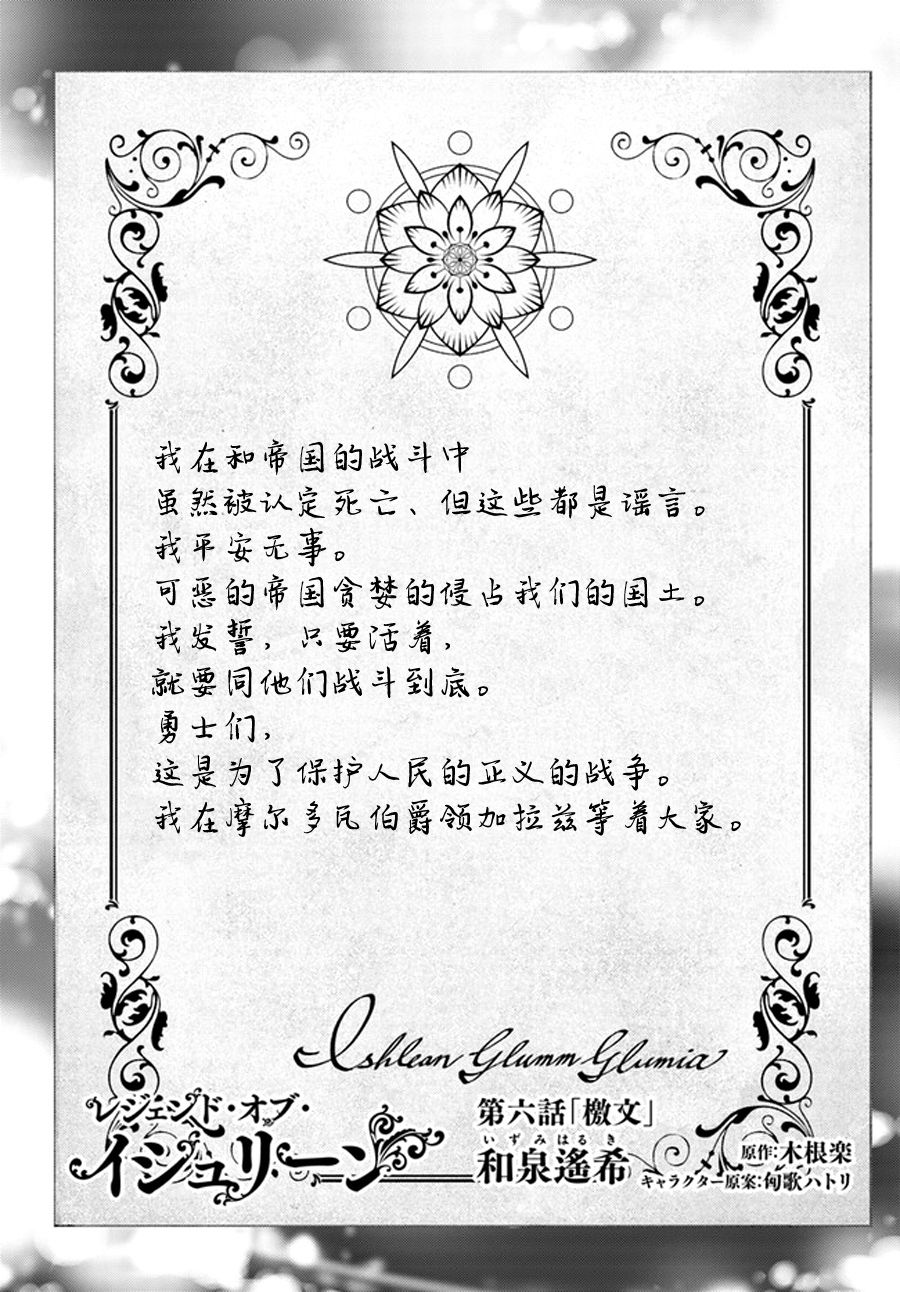 我在和帝国的战斗中
虽然被认定死亡、但这些都是谣言。
我平安无事。
可恶的帝国贪婪的侵占我们的国土。
我发誓,只要活着,
就要同他们战斗到底。
勇士们,
这是为了保护人民的正义的战争。
我在摩尔多瓦伯爵领加拉兹等着大家。
Ishlean Glumm Glumia
レジェンド・オブ・
イシュリーン
第六話「檄文」
いずみはるき
和泉遙希
原作:木根楽
キャラクター原案:匈歌ハトリ